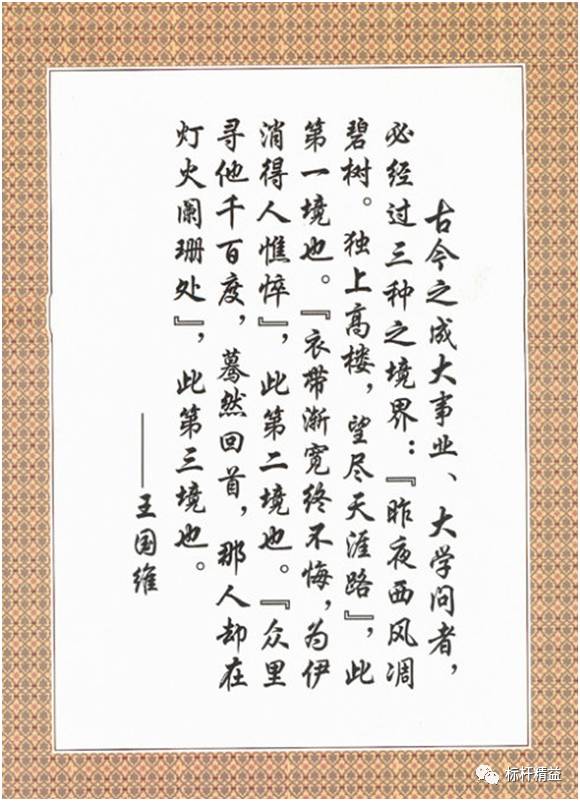 古今之成大事业、大学问者，
必经过三种之境界：『昨夜西风凋
碧树。独上高楼，望尽天涯路』，此
第一境也。『衣带渐宽终不悔，为伊
消得人憔悴』，此第二境也。『众里
寻他千百度，蓦然回首，那人却在
灯火阑珊处』，此第三境也。
——王国维
标杆精益